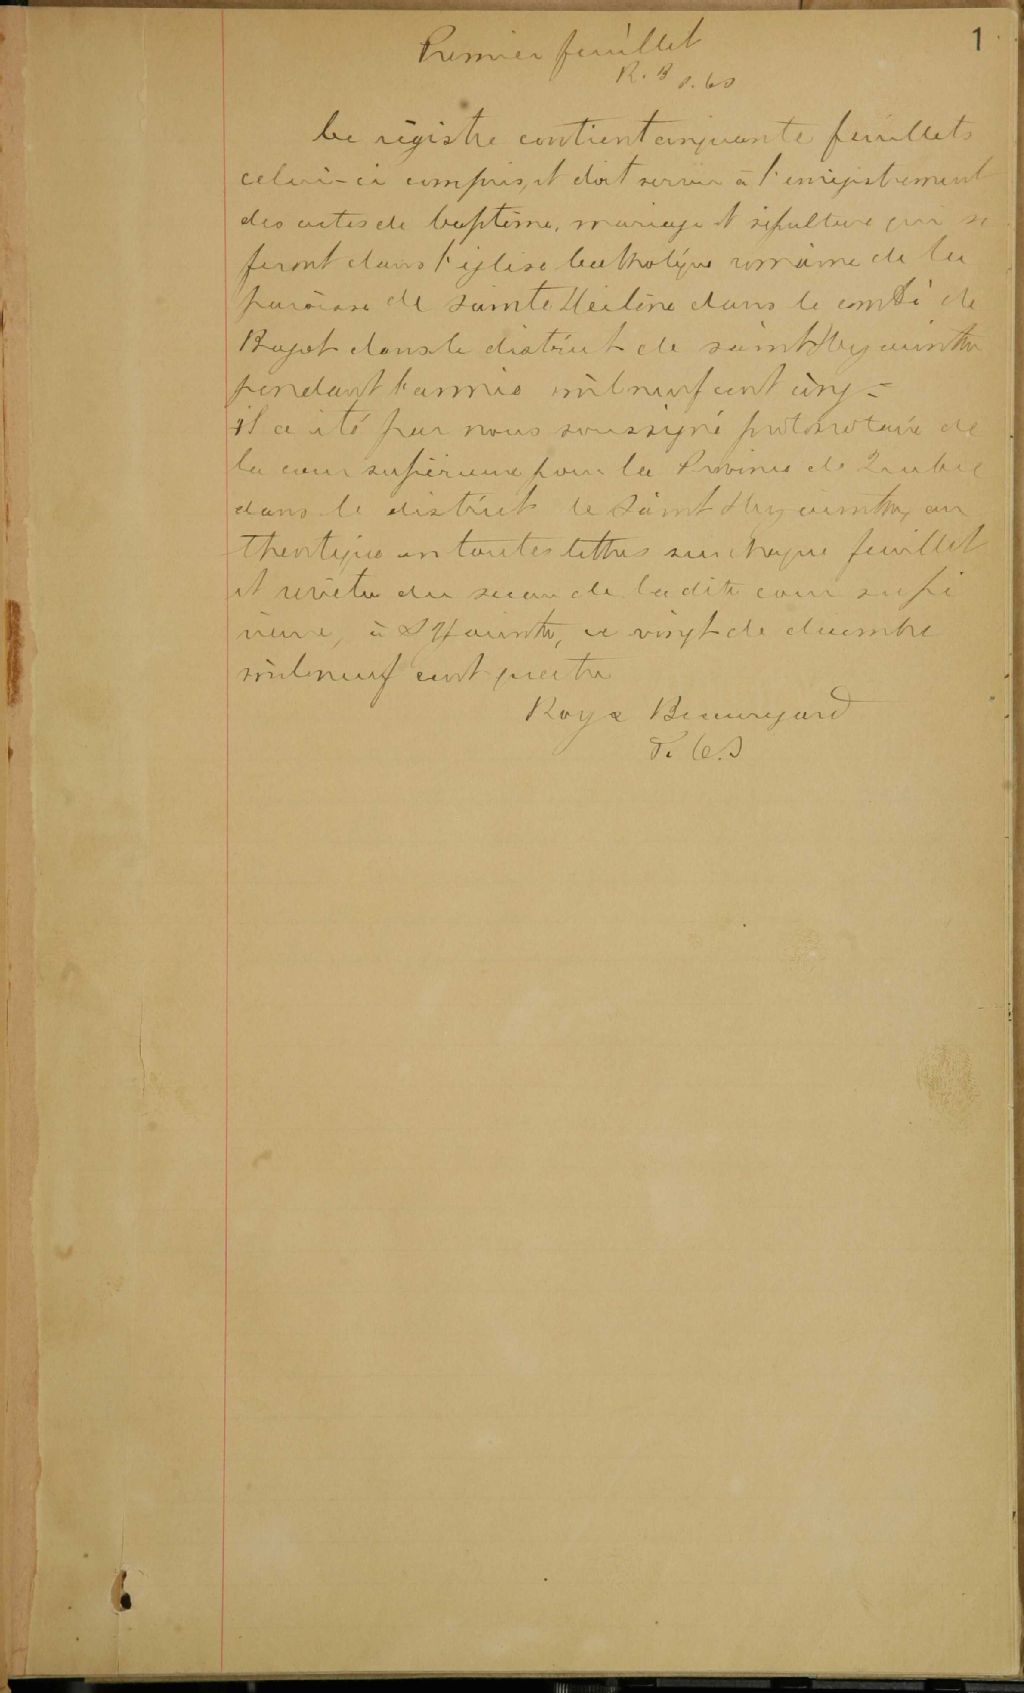 1
Premier feuillet
R. B P. C S
Ce régistre contient cinquante feuillets
celui-ci compris, et doit servir à l'enregistrement
des actes de baptême, mariage et sépulture qui se
feront dans l'église Catholique romaine de la
paroisse de Sainte Hélène dans le comté de
Bagot dans le district de saint Hyacinthe
pendant l'année mil neuf cent cinq =
il a été par nous soussigné protonotaire de
la cour supérieure pour la Province de Québec
dans le district de Saint Hyacinthe, au
thentiqué en toutes lettres sur chaque feuillet
et revêtu du sceau de la dite cour supé
rieure, à St Hyacinthe, ce vingt de décembre
mil neuf cent quatre
Roy & Beauregard
P. C. S